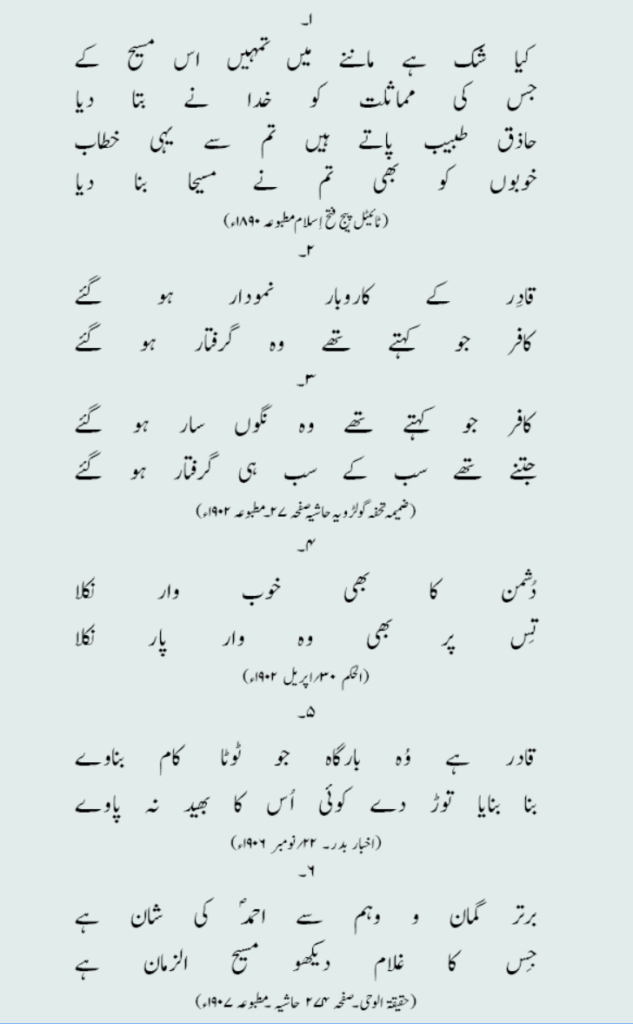 ۱۔
کیا شک ہے ماننے میں تمہیں اس مسیح کے
جس کی مماثلت کو خدا نے بتا دیا
حاذق طبیب پاتے ہیں تم سے یہی خطاب
خوبوں کو بھی تم نے مسیحا بنا دیا
(ٹائیٹل پیج فتح اِسلام مطبوعہ ۱۸۹۰ء)
۲۔
قادِر کے کاروبار نمودار ہو گئے
کافر جو کہتے تھے وہ گرفتار ہو گئے
۳۔
کافر جو کہتے تھے وہ نگوں سار ہو گئے
جتنے تھے سب کے سب ہی گرفتار ہو گئے
(ضمیمہ تحفہ گولڑویہ حاشیہ صفحہ ۲۷۔مطبوعہ ۱۹۰۲ء)
۴۔
دُشمن کا بھی خوب وار نکلا
تِس پر بھی وہ وار پار نکلا
(الحکم ۳۰؍اپریل ۱۹۰۲ء)
۵۔
قادر ہے وُہ بارگاہ جو ٹوٹا کام بناوے
بنا بنایا توڑ دے کوئی اُس کا بھید نہ پاوے
(اخبار بدر۔ ۲۲؍نومبر ۱۹۰۶ء)
۶۔
برتر گمان و وہم سے احمدؐ کی شان ہے
جِس کا غلام دیکھو مسیح الزمان ہے
(حقیقۃ الوحی۔صفحہ ۲۷۴ حاشیہ ۔مطبوعہ ۱۹۰۷ء)